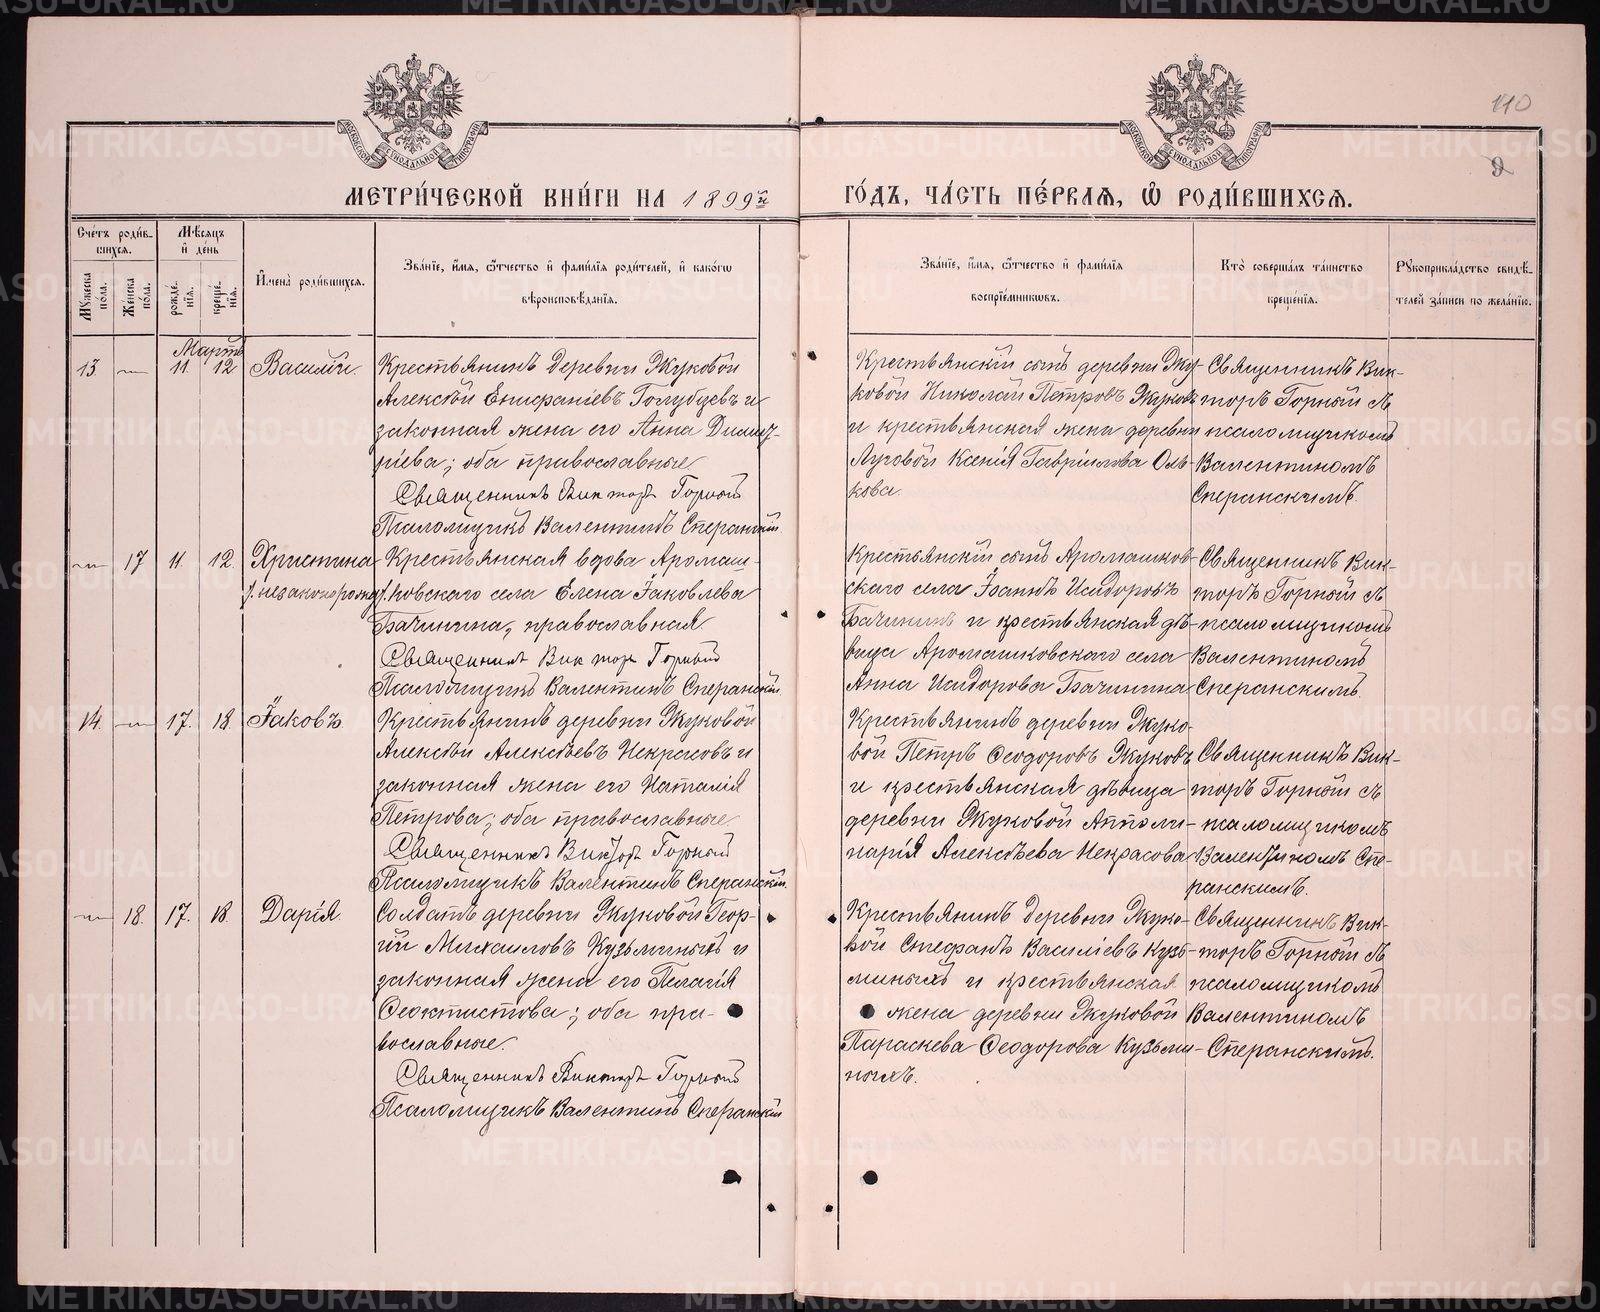 110
9
МЕТРИ́ЧЕСКОЙ КНИ́ГИ НА 1899й
ГО́ДЪ, ЧА́СТЬ ПЕ́РВАЯ, Ѡ҆ РОДИ́ВШИХСЯ.
Сче́тъ роди́в-
шихся.
Мꙋ́жеска
по́ла.
Же́нска
по́ла.
Мѣ́сяцъ
и҆ де́нь
рожде́-
нїя.
креще́-
нїя.
И҆мена̀ роди́вшихся.
Зва́нїе, и҆́мя, ѻ҆́тчество и҆ фами́лїя роди́телей, и҆ како́гѡ
вѣроисповѣ́данїя.
Зва́нїе, и҆́мя, ѻ҆́тчество и҆ фами́лїя
воспрїе́мникѡвъ.
Кто̀ соверша́лъ та́инство
креще́нїя.
Рꙋкоприкла́дство свидѣ́-
телей за́писи по жела́нїю.
Мартъ
13. — 11 12 Василій.
Крестьянинъ деревни Жуковой
Алексѣй Епифаніевъ Голубцевъ и
законная жена его Анна Димит-
ріева; оба православные.
Священникъ Викторъ Горный
Псаломщикъ Валентинъ Сперанскій
Крестьянскій сынъ деревни Жу-
ковой Николай Петровъ Жуковъ
и крестьянская жена деревни
Луговой Ксенія Гавріилова Оль-
кова.
Священникъ Вик-
торъ Горный съ
псаломщикомъ
Валентиномъ
Сперанскимъ.
— 17 11. 12. Христина
/незаконорожд/
Крестьянская вдова Аромаш-
ковскаго села Елена Іаковлева
Бачинина, православная
Священникъ Викторъ Горный
Псаломщикъ Валентинъ Сперанскій.
Крестьянскій сынъ Аромашков-
скаго села Іоаннъ Исидоровъ
Бачининъ и крестьянская дѣ-
вица Аромашковскаго села
Анна Исидорова Бачинина
Священникъ Вик-
торъ Горный съ
псаломщикомъ
Валентиномъ
Сперанскимъ.
14. — 17. 18. Іаковъ.
Крестьянинъ деревни Жуковой
Алексѣй Алексѣевъ Некрасовъ и
законная жена его Наталія
Петрова; оба православные
Священникъ Викторъ Горный
Псаломщикъ Валентинъ Сперанскій.
Крестьянинъ деревни Жуко-
вой Петръ Ѳеодоровъ Жуковъ
и крестьянская дѣвица
деревни Жуковой Аполи-
нарія Алексѣева Некрасова
Священникъ Вик-
торъ Горный съ
псаломщикомъ
Валентиномъ Спе-
ранскимъ.
— 18. 17. 18. Дарія.
Солдатъ деревни Жуковой Геор-
гій Михаиловъ Кузьминыхъ и
законная жена его Пелагія
Ѳеоктистова; оба пра-
вославные.
Священникъ Викторъ Горный
Псаломщикъ Валентинъ Сперанскій
Крестьянинъ деревни Жуко-
вой Стефанъ Василіевъ Кузь-
миныхъ и крестьянская
жена деревни Жуковой
Параскева Ѳеодорова Кузьми-
ныхъ.
Священникъ Вик-
торъ Горный съ
псаломщикомъ
Валентиномъ
Сперанскимъ.